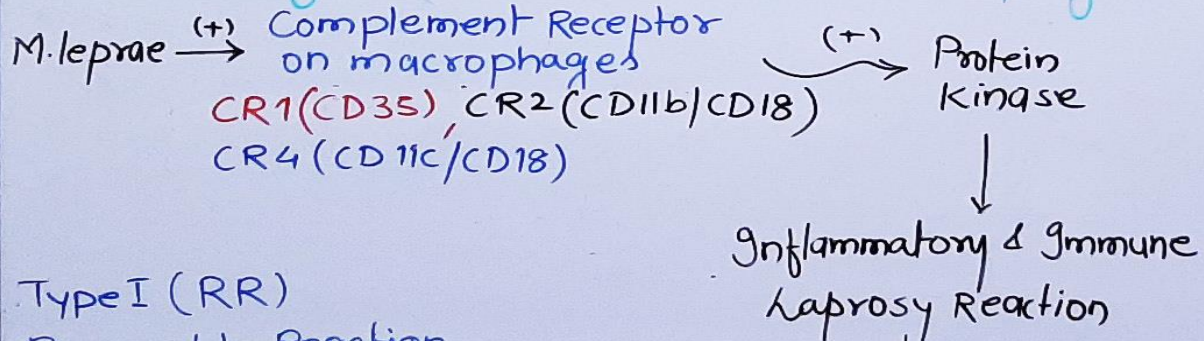 M. leprae (+) Complement Receptor
on macrophages
(+) Protein
Kinase
CR1(CD35), CR2(CD11b/CD18)
CR4(CD11C/CD18)
Inflammatory & Immune
Laprosy Reaction
Type I (RR)
Reaction